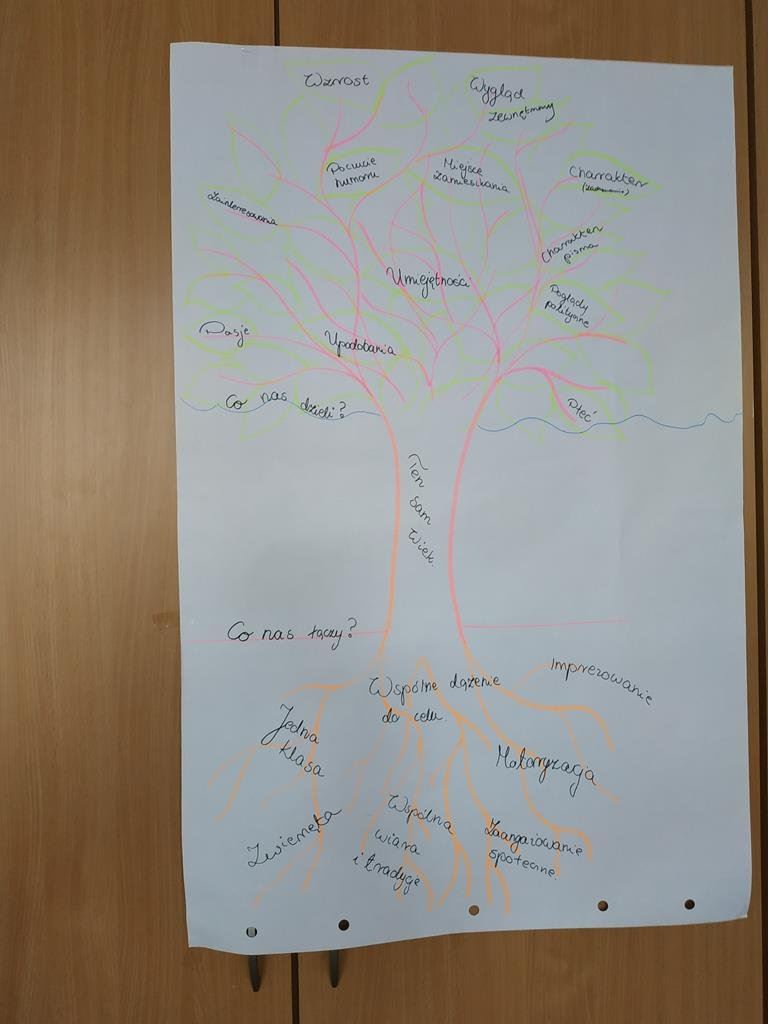 Wzrost
Wygląd
zewnętrzny
Poczucie
humoru
Miejsce
zamieszkania
Charakter
Zainteresowania
Charakter
pisma
Umiejętności
Poglądy
polityczne
Pasje
Upodobania
Co nas dzieli?
Płeć
Ten
sam
wiek.
Co nas łączy?
Wspólne dążenie
do celu.
Imprezowanie
Jedna
klasa
Motoryzacja
Zwierzęta
Wspólna
wiara
i tradycje
Zaangażowanie
społeczne.